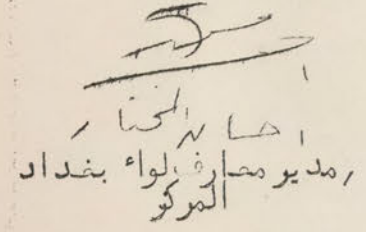 احسان المختار
مدير معارف لواء بغداد
المركز